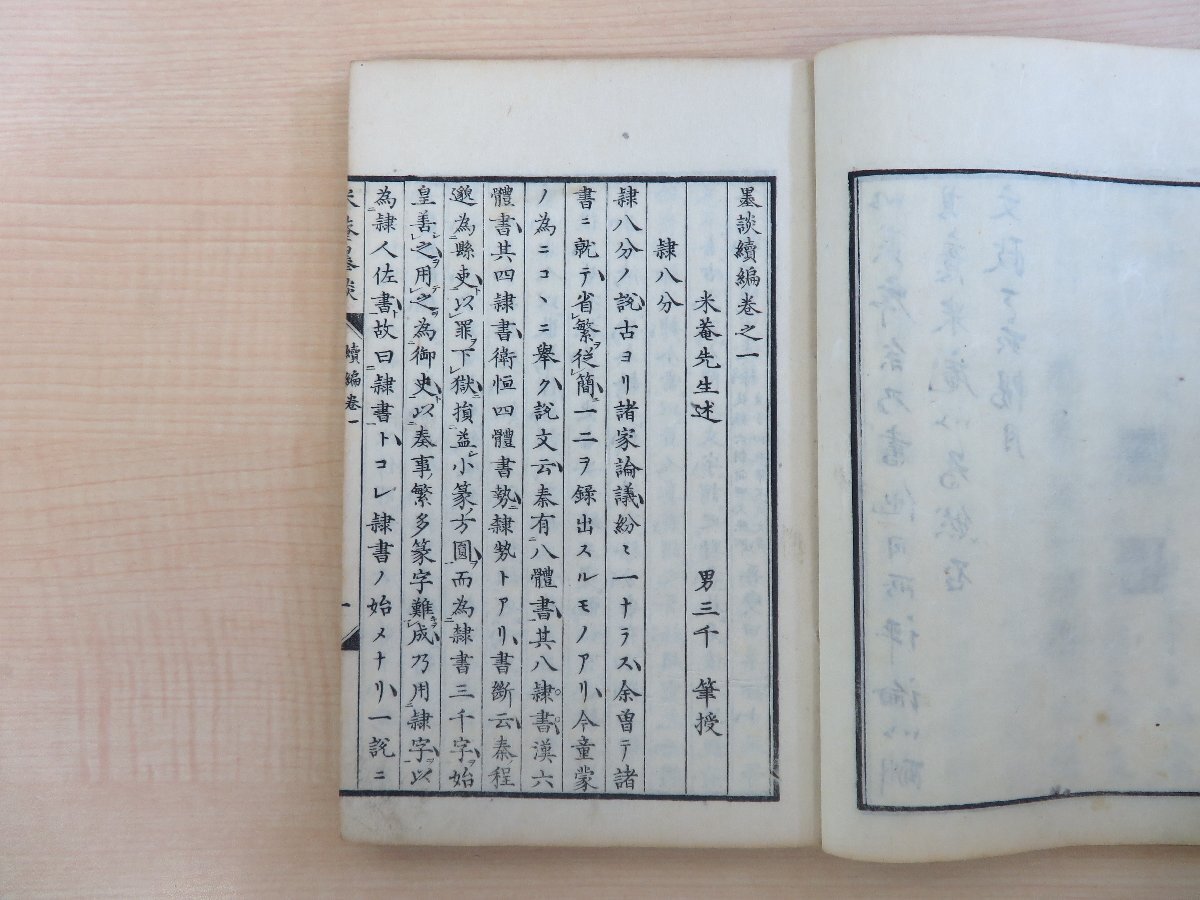 墨談續編卷之一
米菴先生述 男三千 筆授
隷八分
隷八分ノ説古ヨリ諸家論議紛〻一ナラス余曽テ諸
書ニ就テ省繁從簡一二ヲ録出スルモノアリ今童蒙
ノ為ニコヽニ擧ク説文云秦有八體書其八隷書漢六
體書其四隷書衛恒四體書勢隷勢トアリ書斷云秦程
邈為縣吏以罪下獄損益小篆方圓而為隷書三千字始
皇善之用之為御史以奏事繁多篆字難成乃用隷字以
為隷人佐書故曰隷書トコレ隷書ノ始メナリ一説ニ
米菴墨談 續編卷一 一